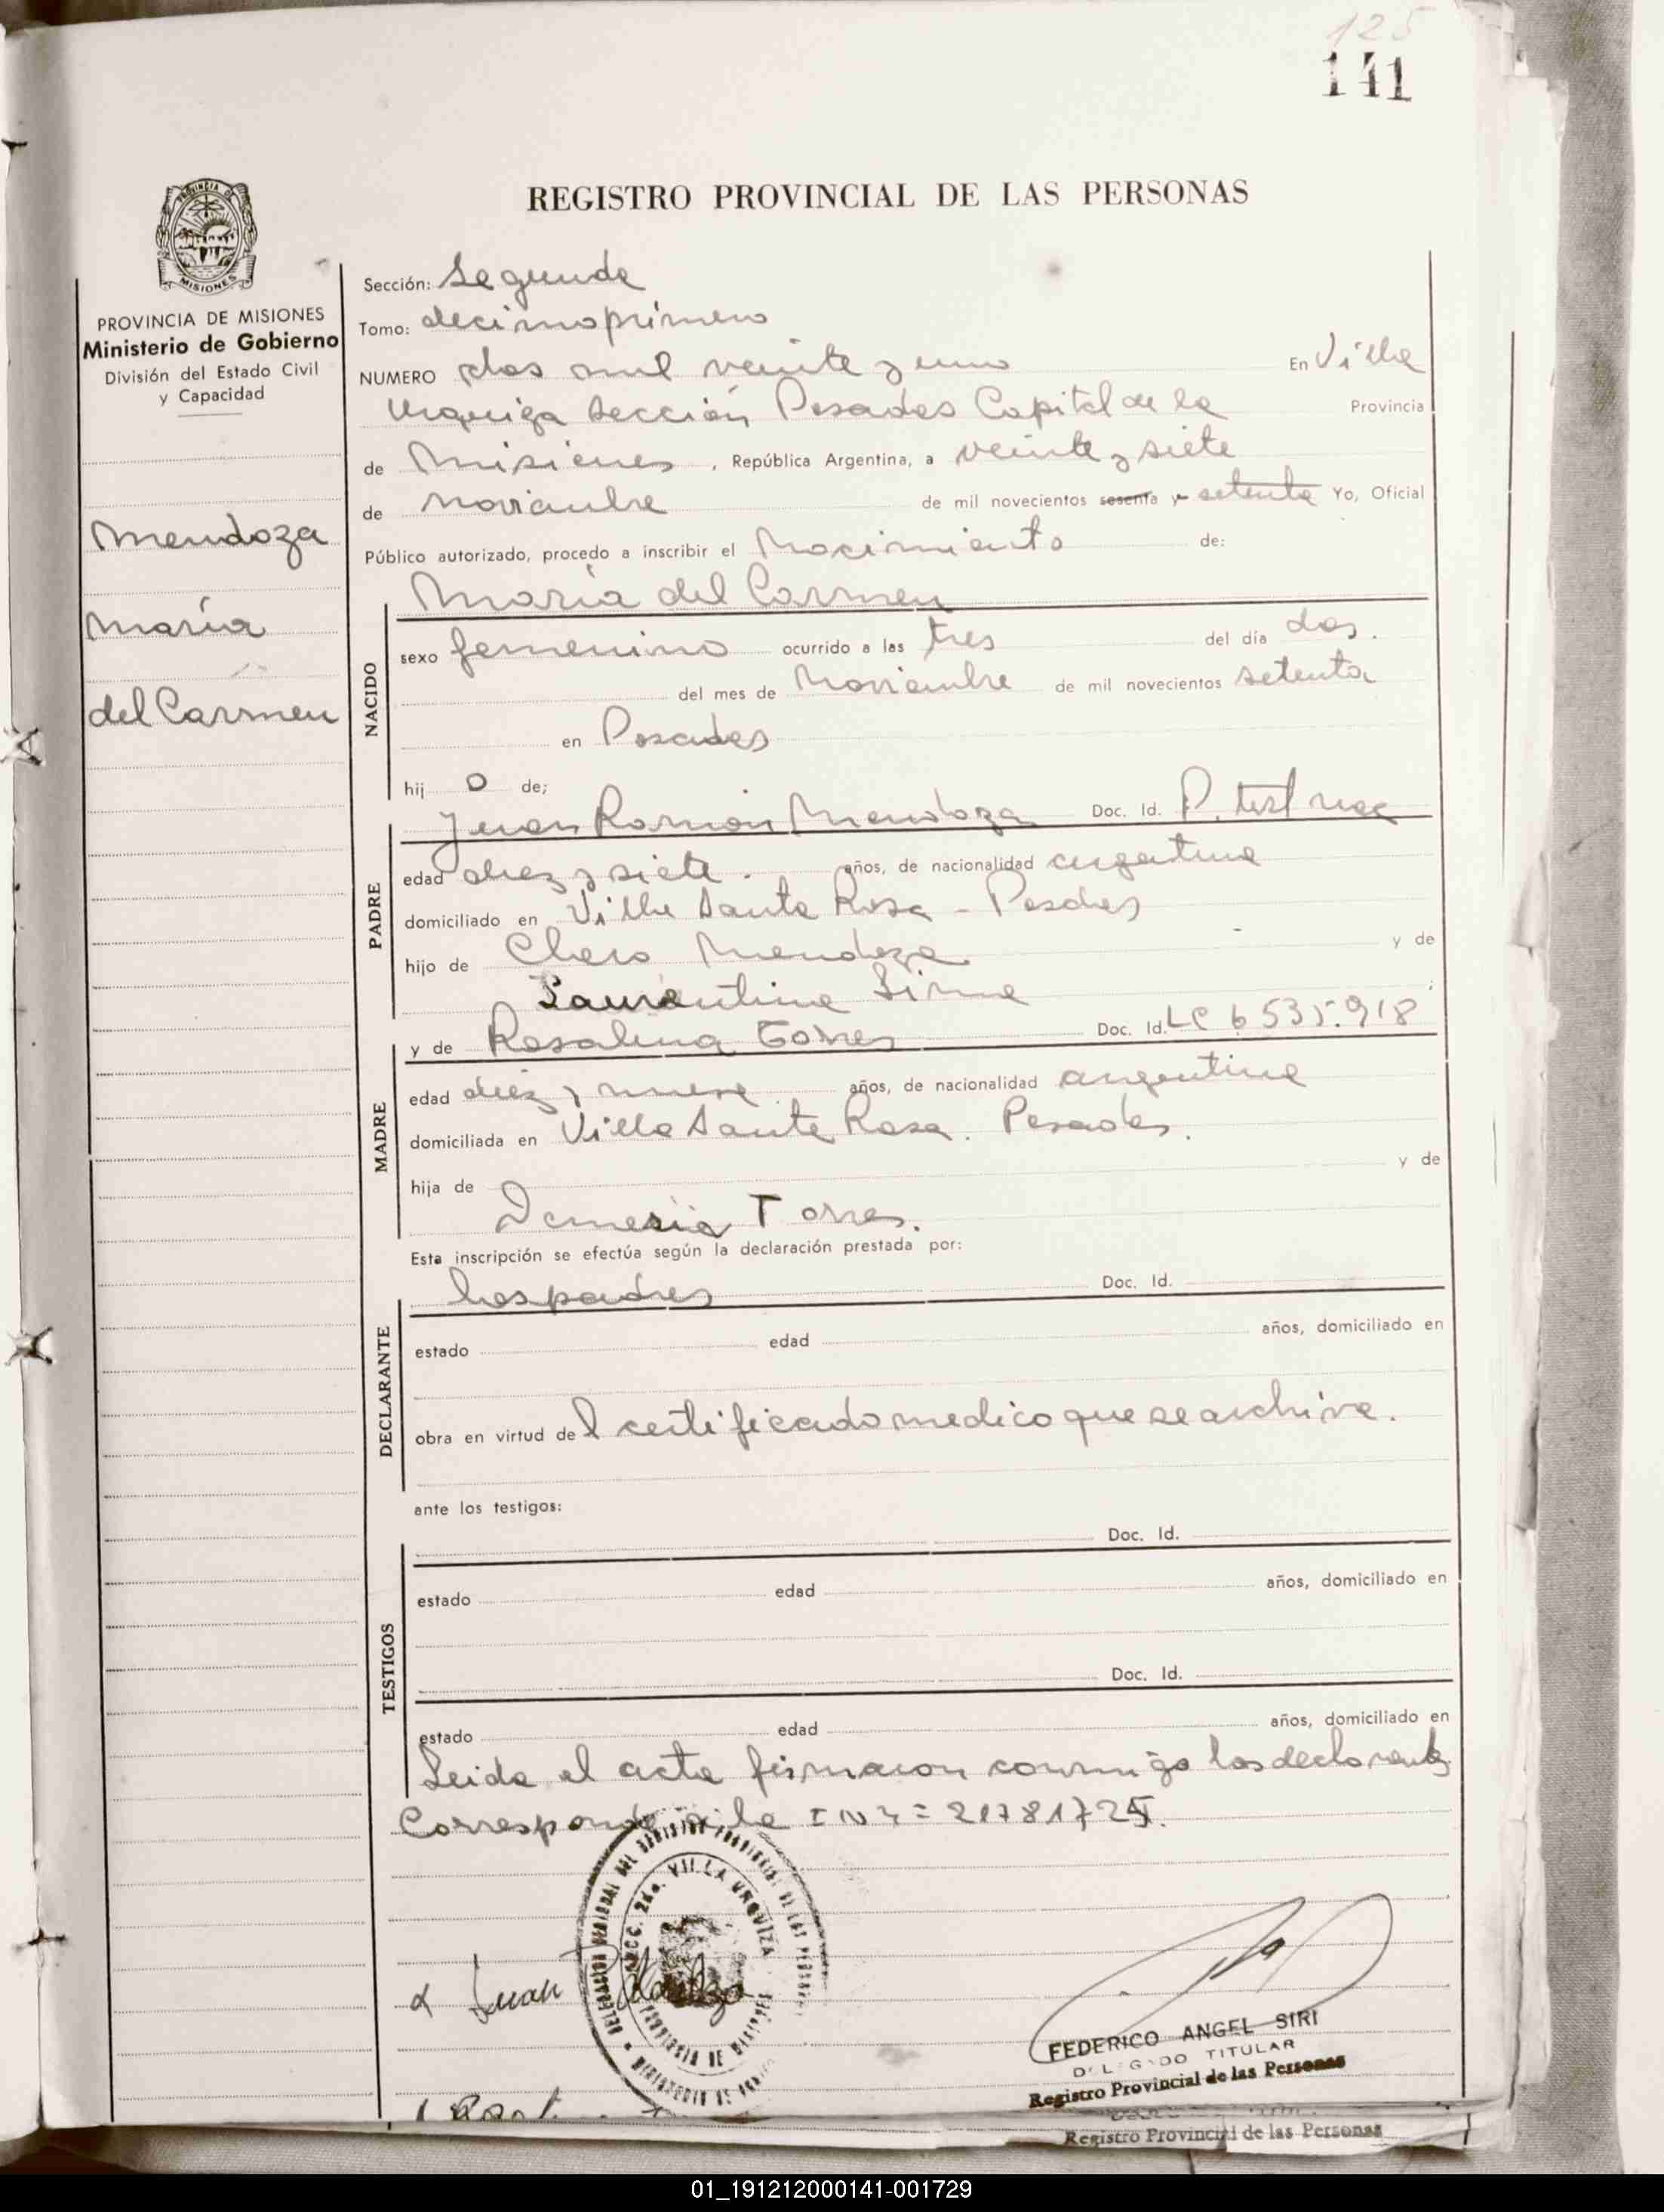 125
141
REGISTRO PROVINCIAL DE LAS PERSONAS
PROVINCIA DE
MISIONES
PROVINCIA DE MISIONES
Ministerio de Gobierno
División del Estado Civil
y Capacidad
Mendoza
María
del Carmen
Sección: Segunda
Tomo: decimoprimero
NUMERO dos mil veinte y uno En Villa
Urquiza Sección Posadas Capital de la Provincia
de Misiones, República Argentina, a veinte y siete
de noviembre de mil novecientos sesenta y setenta Yo, Oficial
Público autorizado, procedo a inscribir el Nacimiento de:
NACIDO
María del Carmen
sexo femenino ocurrido a las tres del día dos.
del mes de Noviembre de mil novecientos setenta
en Posadas
hij o de;
PADRE
Juan Ramón Mendoza Doc. Id. P.
edad diez y siete. años, de nacionalidad argentina
domiciliado en Villa Santa Rosa - Posadas
hijo de Mendoza y de
Laurentina
MADRE
y de Rosalina Torres Doc. Id. LC 6535.918
edad diez y nueve años, de nacionalidad argentina
domiciliada en Villa Santa Rosa. Posadas.
hija de y de
Torres.
Esta inscripción se efectúa según la declaración prestada por:
DECLARANTE
los padres Doc. Id.
estado edad años, domiciliado en
obra en virtud del certificado medico que se archiva.
ante los testigos:
TESTIGOS
Doc. Id.
estado edad años, domiciliado en
Doc. Id.
estado edad años, domiciliado en
Leida el acta firmaron conmigo los declarantes
Corresponde a la 21781725.
DELEGACION REGIONAL DEL REGISTRO PROVINCIAL DE LAS PERSONAS
SECC. 2da. VILLA URQUIZA
PROVINCIA DE MISIONES
Juan
FEDERICO ANGEL SIRI
DELEGADO TITULAR
Registro Provincial de las Personas
Registro Provincial de las Personas
01_191212000141-001729